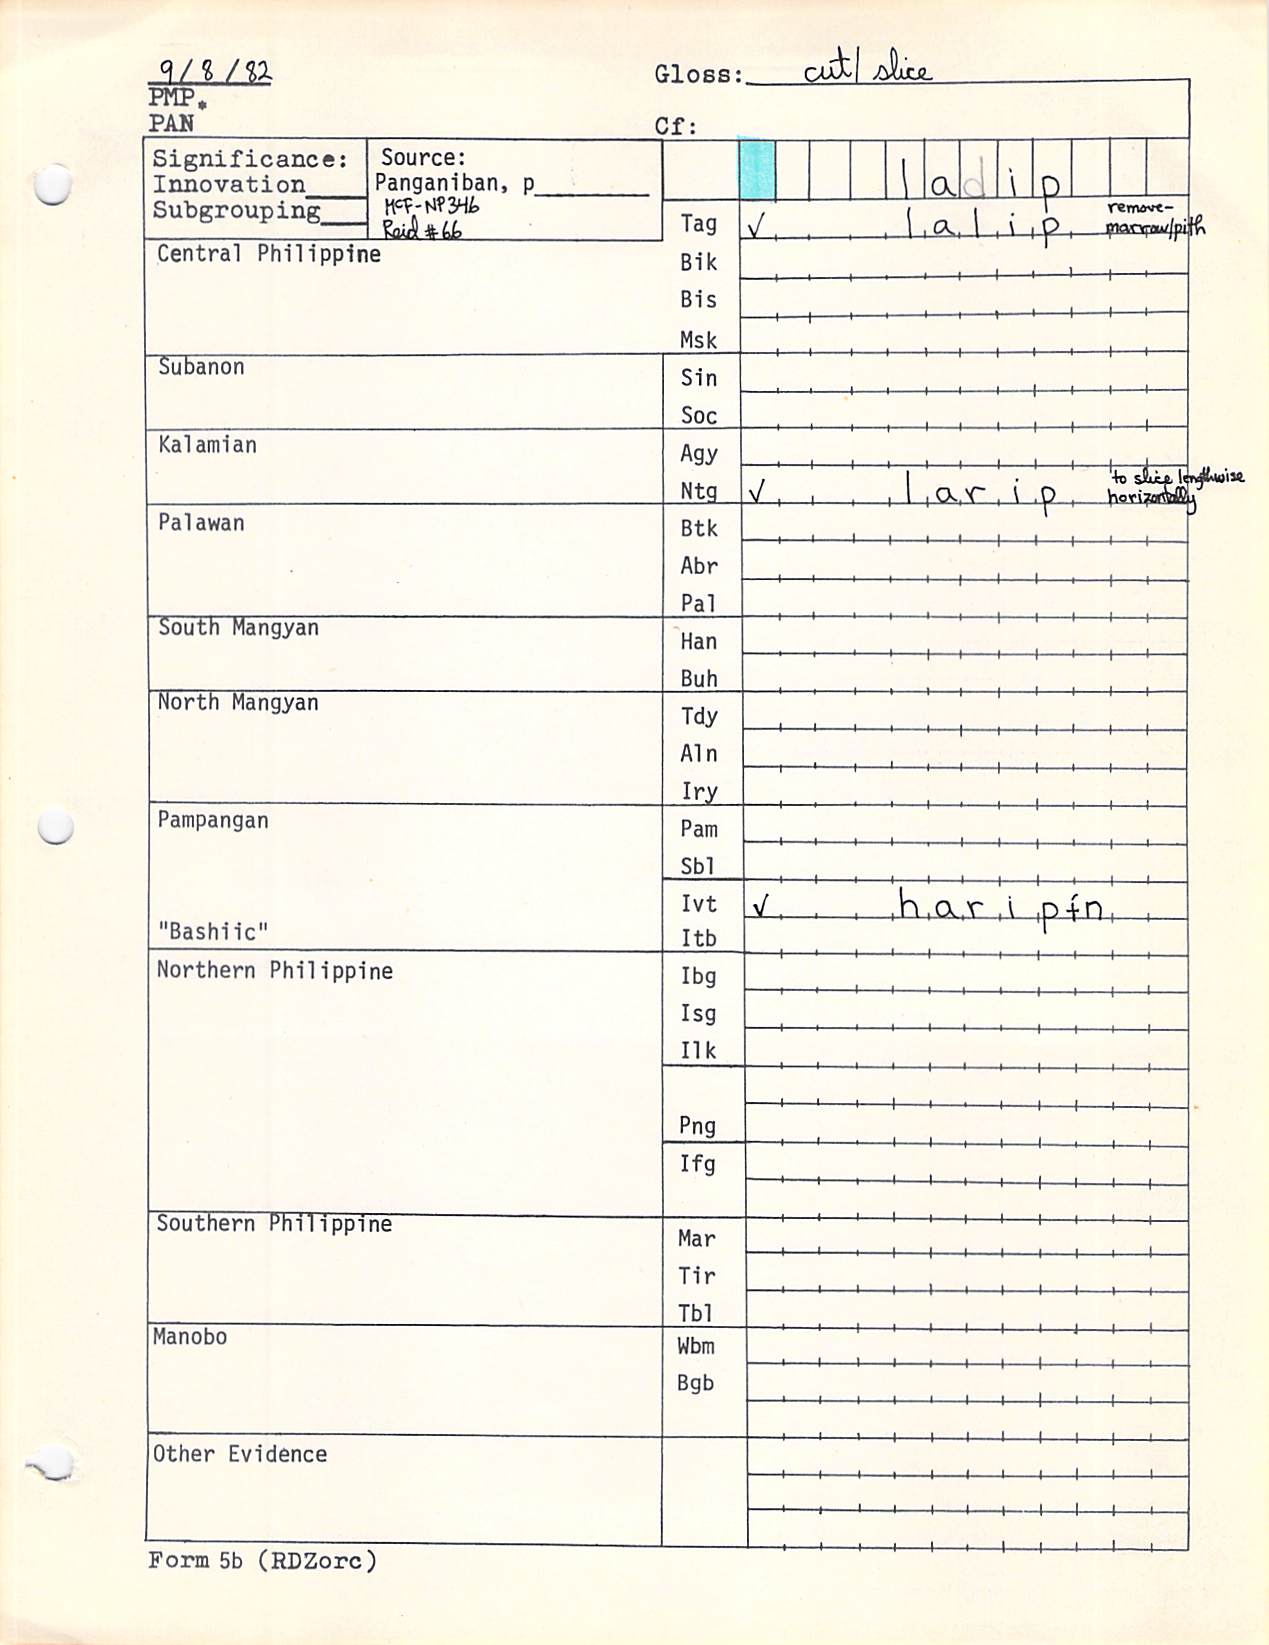 9/8/82
Gloss: cut/slice
PMP*
PAN
Cf:
Significance:
Innovation
Subgrouping
Source:
Panganiban, p
McF-NP346
Reid #66
ladip
Tag ✓ lalip remove-
marrow/pith
Central Philippine
Bik
Bis
Msk
Subanon
Sin
Soc
Kalamian
Agy
Ntg ✓ larip to slice lengthwise
horizontally
Palawan
Btk
Abr
Pal
South Mangyan
Han
Buh
North Mangyan
Tdy
Aln
Iry
Pampangan
Pam
Sbl
Ivt ✓ haripɨn
"Bashiic"
Itb
Northern Philippine
Ibg
Isg
Ilk
Png
Ifg
Southern Philippine
Mar
Tir
Tbl
Manobo
Wbm
Bgb
Other Evidence
Form 5b (RDZorc)